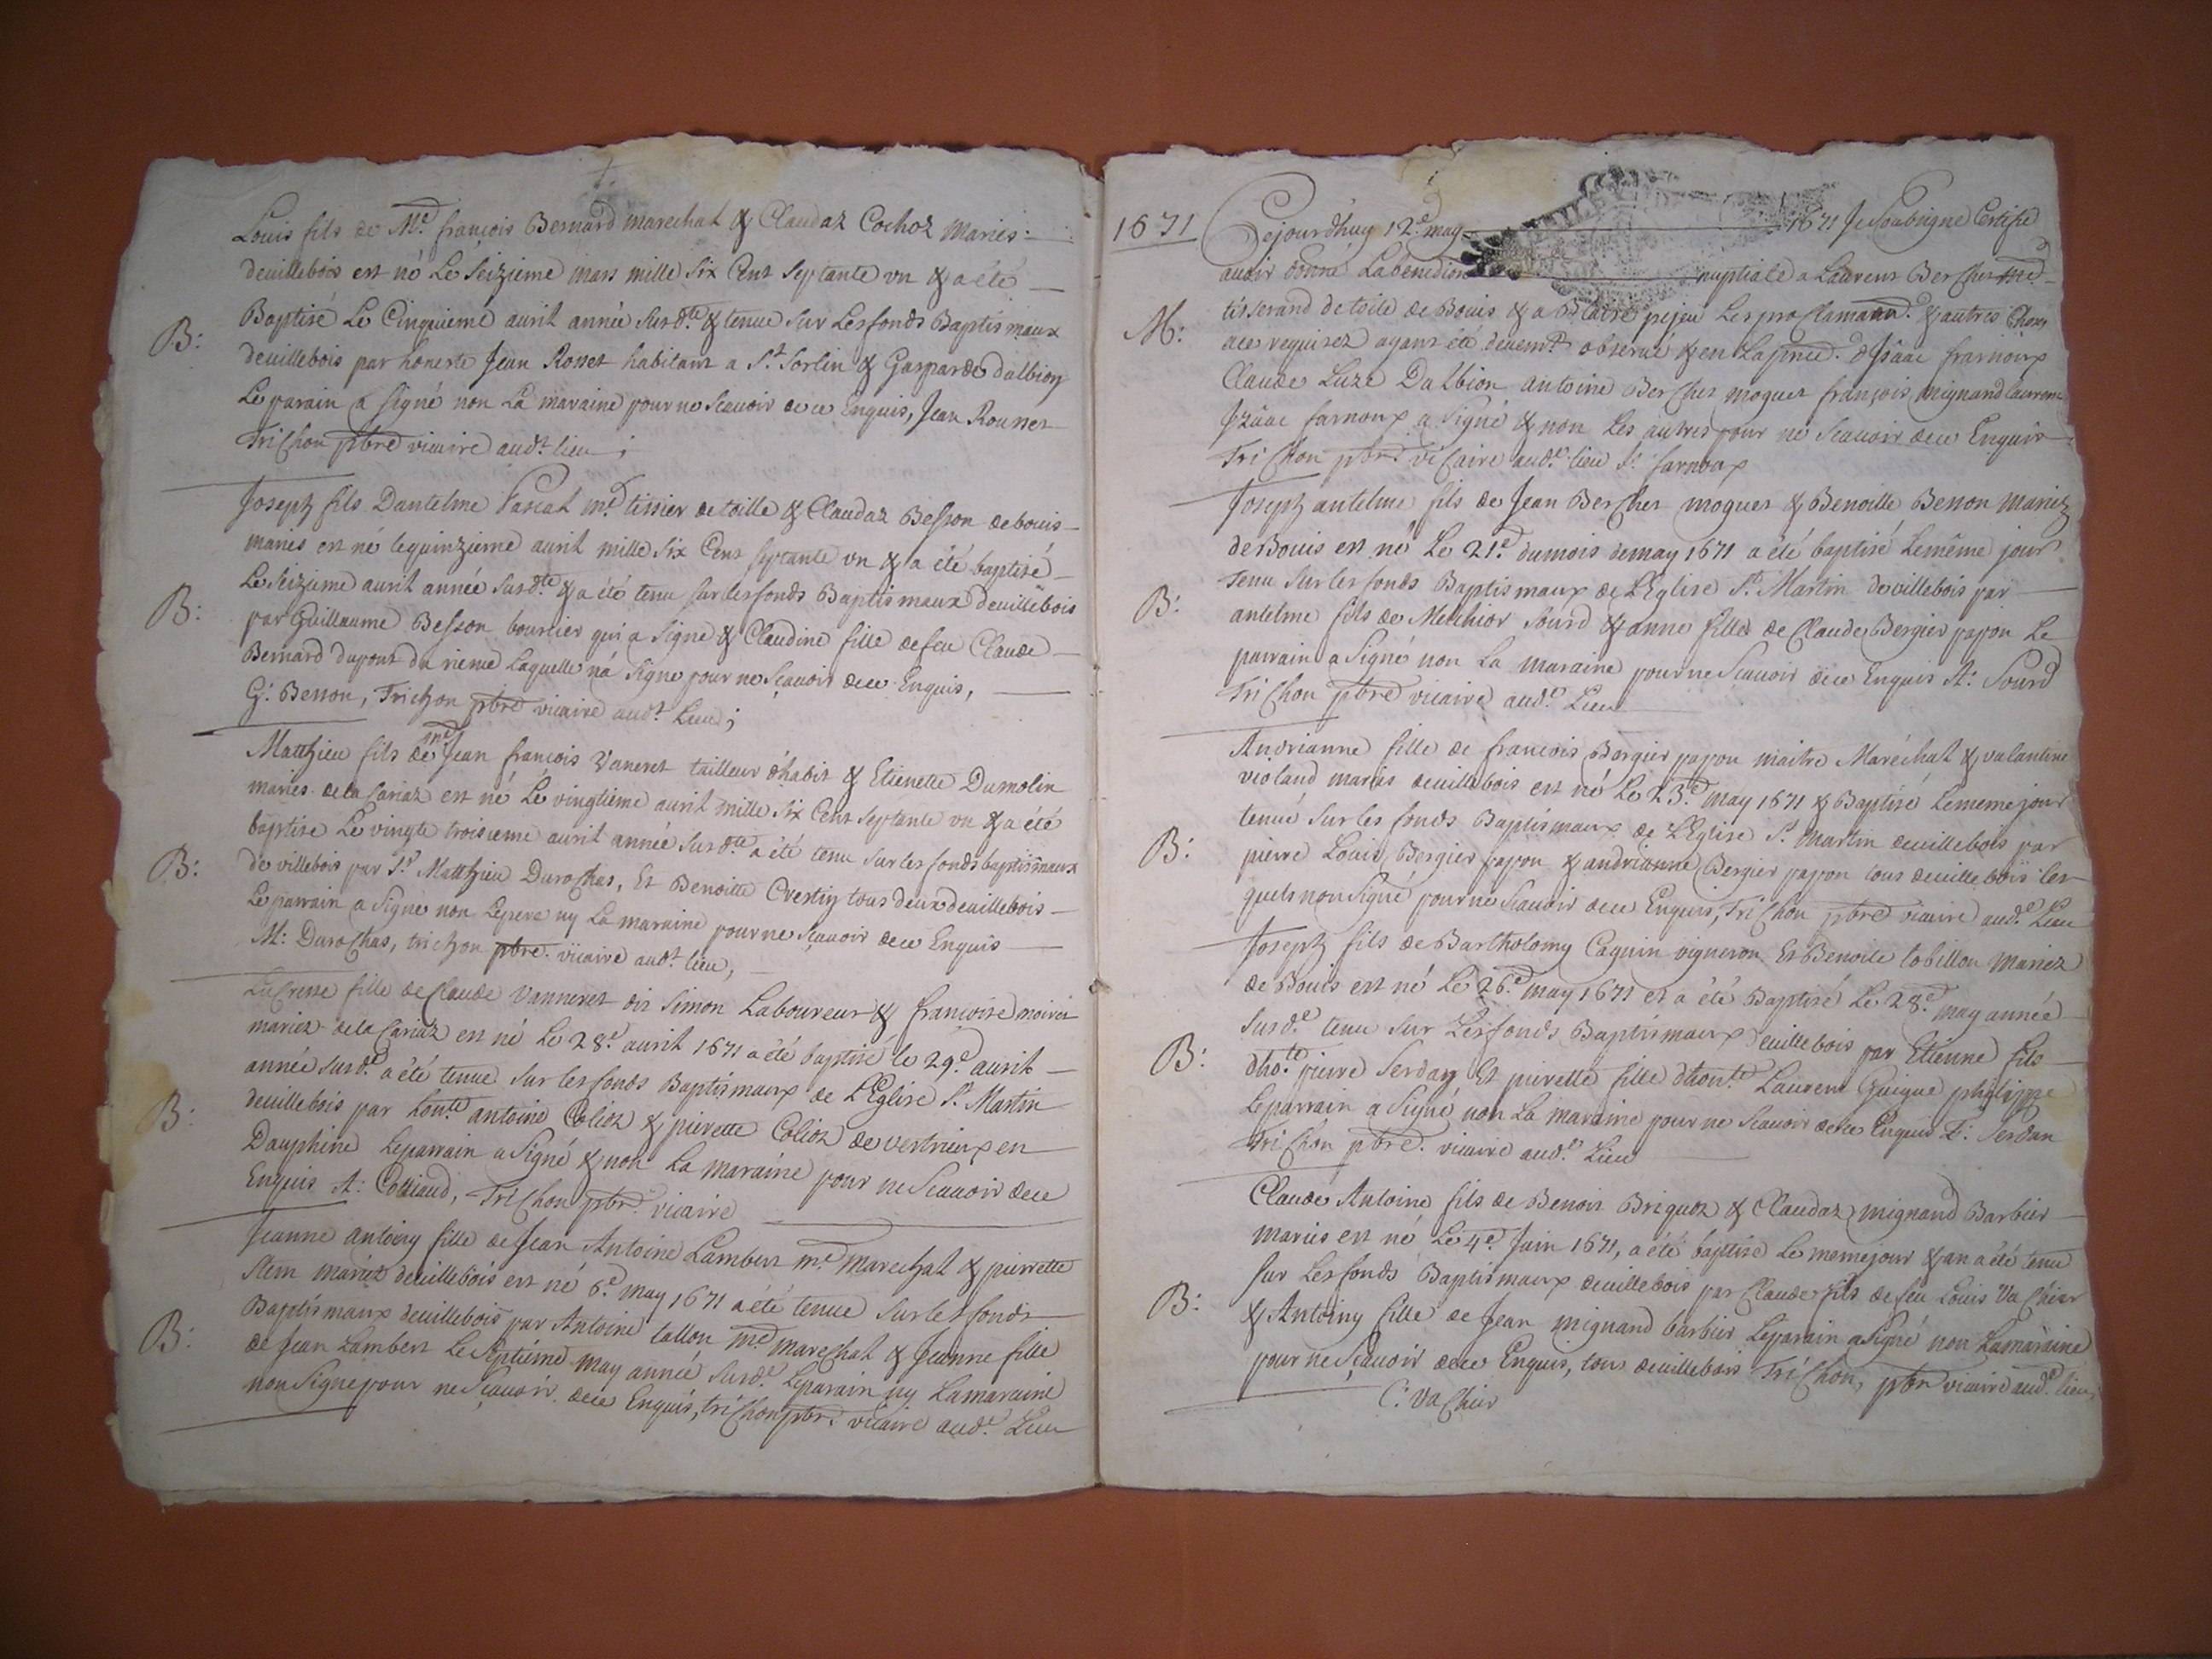 Louis fils de Me. françois Bernard marechal & Claudaz Cochoz Mariés
deuillebois est né Le Seizieme mars mille Six Cent Septante vn & a été
B: Baptisé Le Cinquiemé auril année Susdte & tenue Sur Les fonds Baptismaux
deuillebois par honeste Jean Rosset habitant a St. Sorlin & Gasparde dalbion
Le parain a Signé non La maraine pour ne Scauoir de ce Enquis, Jean Rousset
Trichon pbre vicaire audt. lieu ;
Joseph fils Dantelme Pascal md tissier de toille & Claudaz Besson de bouis
mariés est né le quinzieme auril mille Six Cent Septante vn & a été baptisé
Le Seizieme auril année Susdte. & a été tenu Sur les fonds Baptismaux deuillebois
B: par Guillaume Besson boursier qui a Signe & Claudine fille de feu Claude
Bernard dupont du rieme Laquelle na Signe pour ne Scauoir de ce Enquis,
G: Besson, Trichon pbre vicaire audt. Lieu ;
Matthieu fils de me Jean françois Vaneret tailleur dhabit & Etienette Dumolin
mariés de la Cariaz est né Le vingtieme auril mille Six Cent Septante vn & a été
baptise Le vingte troisieme auril année Susdte a été tenu Sur les fonds baptismaux
B: de villebois par Sr. Matthieu Durochas, Et Benoitte Crestin tous deux deuillebois
Le parrain a Signé non Lepere ny La maraine pour ne Scauoir de ce Enquis
M: Durochas, trichon pbre. vicaire audt. lieu,
Lucresse fille de Claude Vanneret dit Simon Laboureur & francoise
mariez de la Cariaz est né Le 28e. auril 1671 a été baptisé le 29e. auril
année Susde. a été tenue Sur les fonds Baptismaux de LEglise St. Martin
B: deuillebois par honte antoine Colioz & pierette Colioz de vertrieux en
Dauphine Leparrain a Signé & non La maraine pour ne Scauoir de ce
Enquis A: Colliaud, Trichon pbr. vicaire
Jeanne antoiny fille de Jean Antoine Lambert me. Marechal & pierrette
mariez deuillebois est né 6e. may 1671 a été tenue Sur les fonds
B: Baptismaux deuillebois par Antoine tallon me marechal & Jeanne fille
de Jean Lambert Le Septiéme may année Susde. Leparain ny Lamaraine
non Signe pour ne Scauoir de ce Enquis, trichon pbr. vicaire aude. Lieu
1671 Cejourdhuy 12e. may 1671 Je Soubsigne Certifie
auoir donné Labenedion nuptiale a Laurent Bercher
M: tisserand de toile de Bouis & a pejeu Les proclamaon. & autres Choses
a ce requises ayant été deuemt observé & en La pnce. dJsâac farnoux
Claude Luze Dalbion antoine Bercher moguet françois mignand laurent
Jzâac farnoux a Signé & non Les autres pour ne Scauoir de ce Enquis
Trichon pbr. vicaire aude. lieu J: farnoux
Joseph antelme fils de Jean Bercher moguet & Benoitte Besson Mariez
de Bouis est né Le 21e. dumois demay 1671 a été baptisé Lemême jour
tenu Sur les fonds Baptismaux de LEglise St. Martin devillebois par
B: antelme fils de Melchior Sourd & anne fille de Claude Bergier papon Le
parrain a Signé non La maraine pour ne Scauoir de ce Enquis A: Sourd
Trichon pbre vicaire aude. Lieu
Andrianne fille de francois Bergier papon maitre Maréchal & valantine
violand mariés deuillebois est né Le 23e. may 1671 & Baptisé Lememe jour
tenué Sur les fonds Baptismaux de LEglise St. martin deuillebois par
B: pierre Louis Bergier papon & andrianne Bergier papon tous deuillebois les
quels non Signé pour ne Scauoir de ce Enquis, Trichon pbre vicaire aude. Lieu
Joseph fils de Bartholomy Caguin vigneron Et Benoite tobillon Mariez
de Bouis est né Le 26e. may 1671 et a été Baptisé Le 28e. may année
Susde. tenu Sur Les fonds Baptismaux deuillebois par Etienne fils
B: dhote. pierre Serdan Et pierette fille dhonte. Laurent Guigue philippe
Leparrain a Signé non La maraine pour ne Scauoir de ce Enquis E: Serdan
Trichon pbre. vicaire aude. Lieu
Claude Antoine fils de Benoit Briquoz & Claudaz mignand Barbier
mariés est né Le 4e. Juin 1671, a été baptisé Le meme jour & an a été tenu
Sur Les fonds Baptismaux deuillebois par Claude fils de feu Louis Vachier
B: & Antoiny fille de Jean mignand barbier Leparain a Signé non Lamaraine
pour ne Scauoir de ce Enquis, tous deuillebois Trichon, pbr vicaire aude. lieu,
C: Vachier